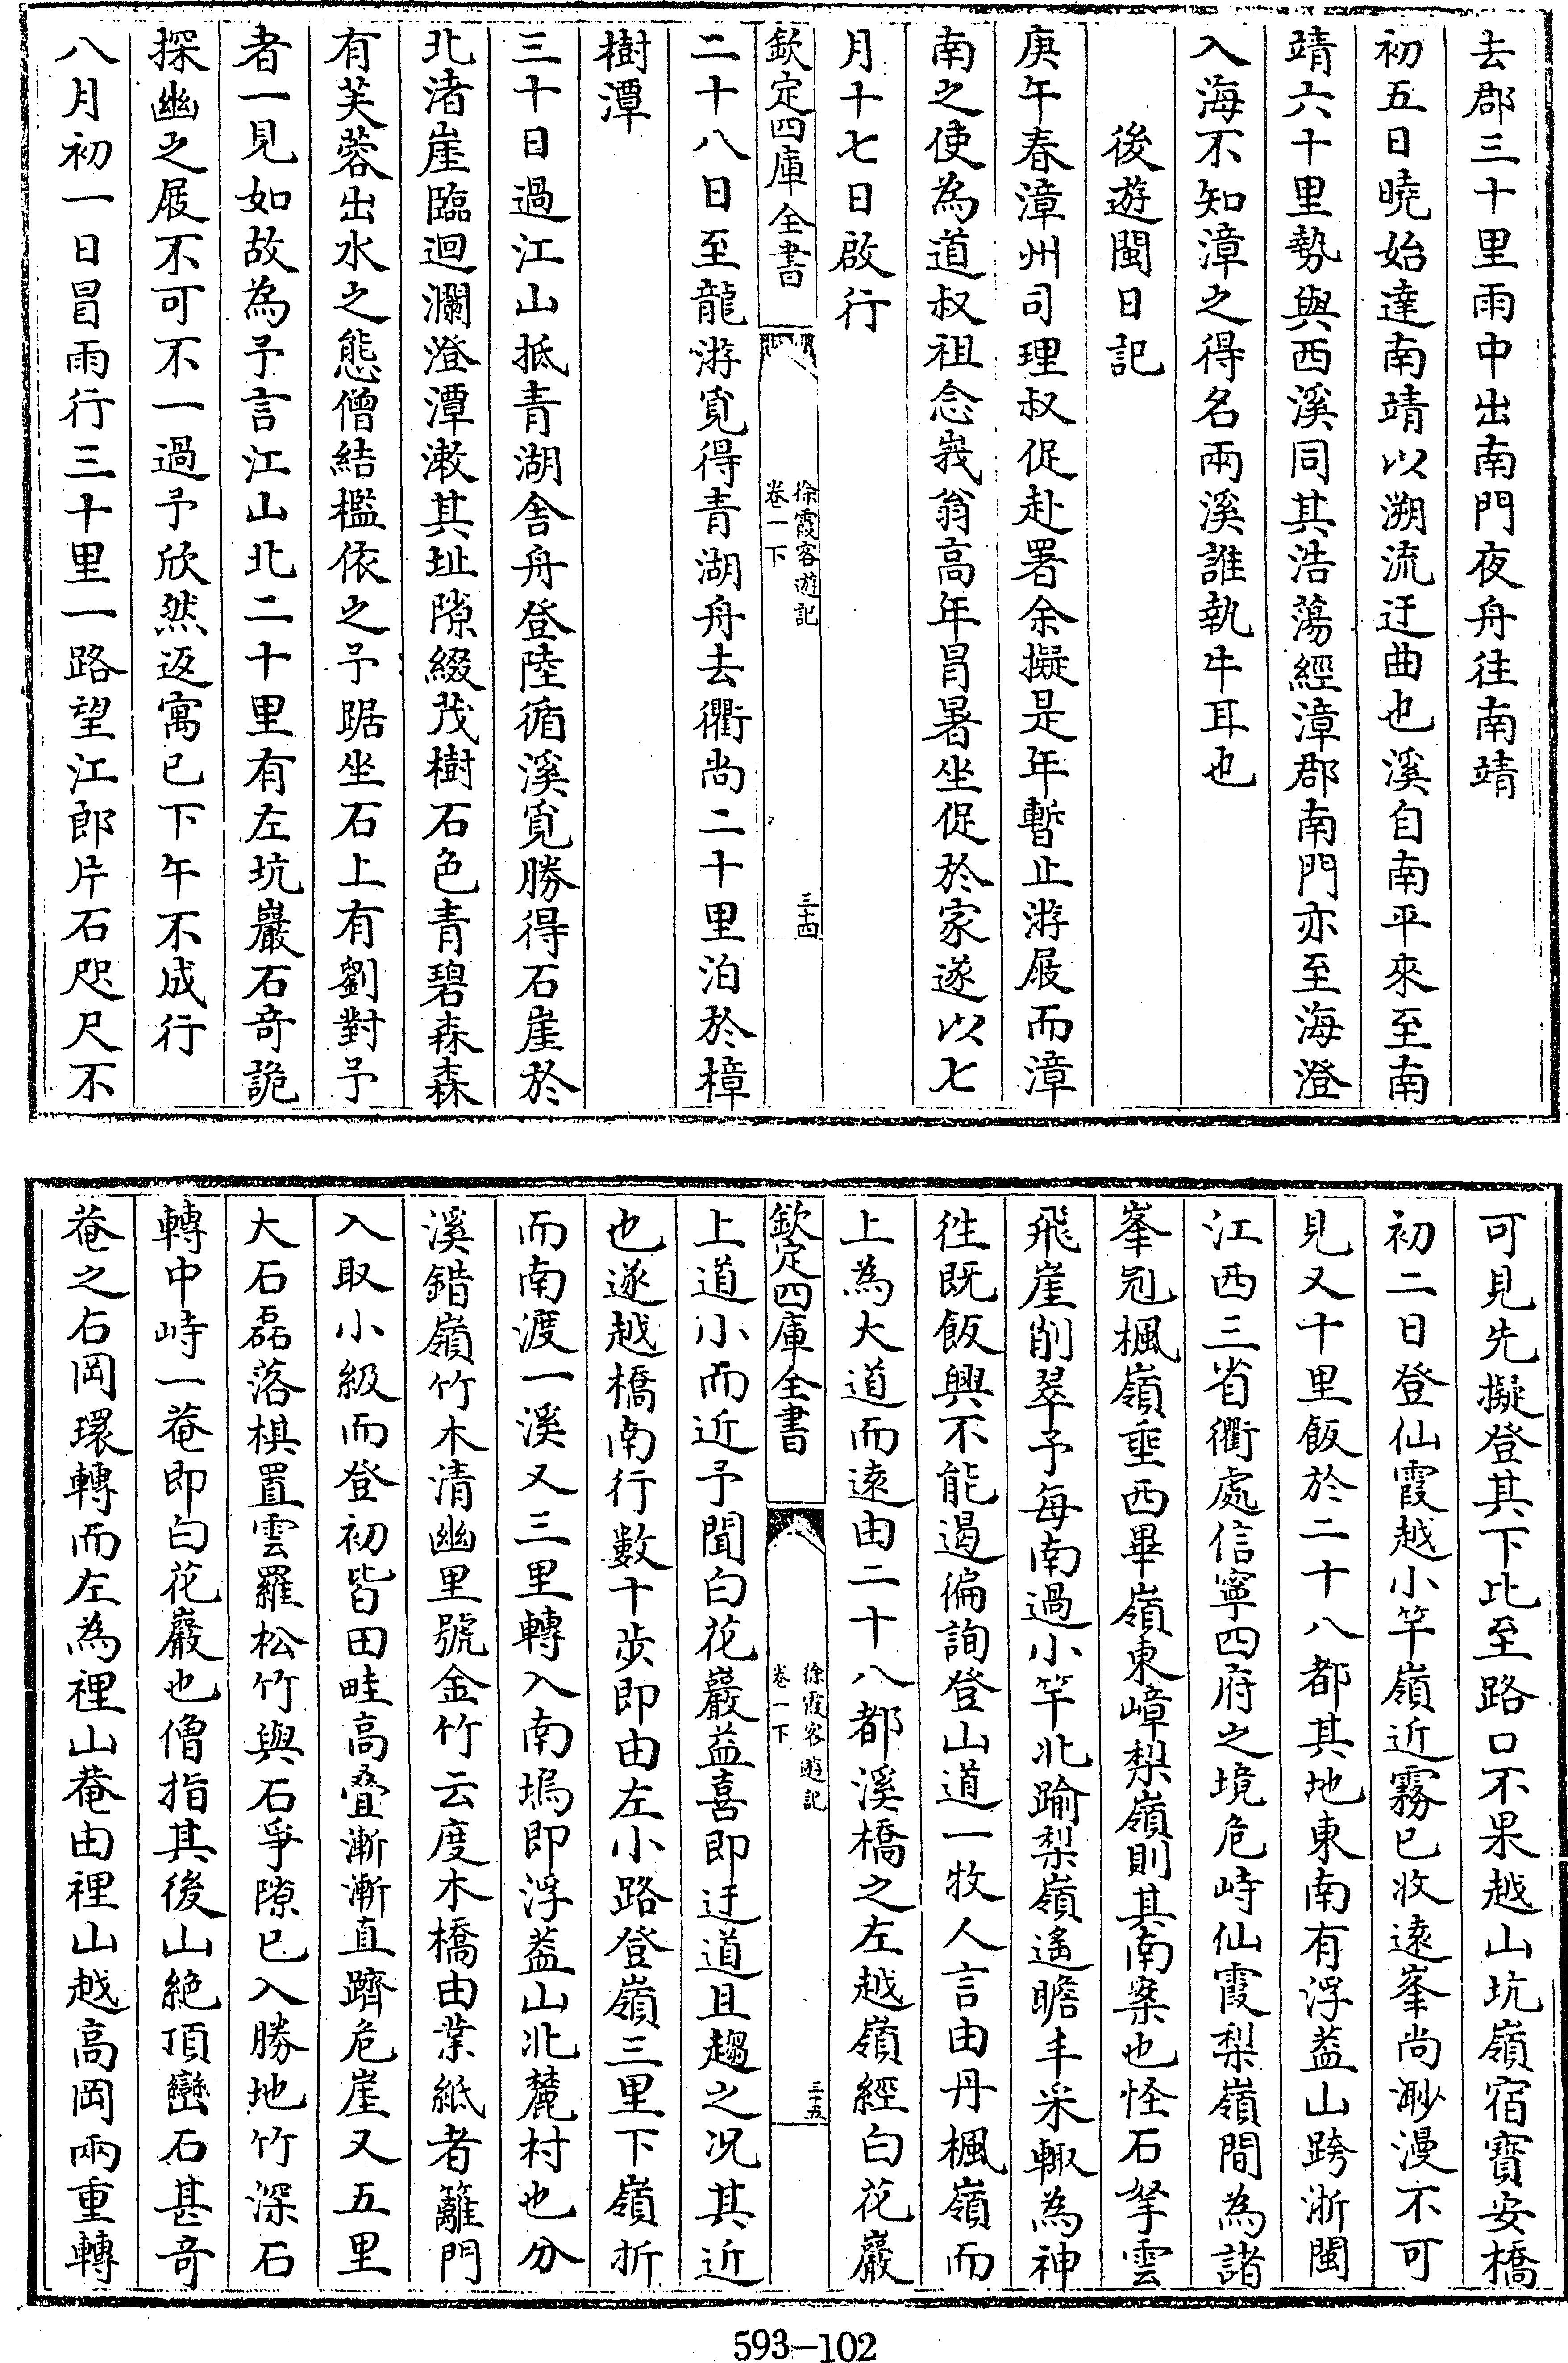 去郡三十里雨中出南門夜舟往南靖
初五日曉始達南靖以溯流迂曲也溪自南平來至南
靖六十里勢與西溪同其浩蕩經漳郡南門亦至海澄
入海不知漳之得名兩溪誰執牛耳也
後遊閩日記
庚午春漳州司理叔促赴署余擬是年暫止游屐而漳
南之使為道叔祖念峩翁高年冒暑坐促於家遂以七
月十七日啟行
欽定四庫全書
徐霞客遊記
卷一下
三十四
二十八日至龍游覓得青湖舟去衢尚二十里泊於樟
樹潭
三十日過江山抵青湖舍舟登陸循溪覓勝得石崖於
北渚崖臨迴瀾澄潭漱其址隙綴茂樹石色青碧森森
有芙蓉出水之態僧結檻依之予踞坐石上有劉對予
者一見如故為予言江山北二十里有左坑巖石奇詭
探幽之屐不可不一過予欣然返寓已下午不成行
八月初一日冒雨行三十里一路望江郎片石咫尺不
可見先擬登其下比至路口不果越山坑嶺宿寶安橋
初二日登仙霞越小竿嶺近霧已收遠峯尚渺漫不可
見又十里飯於二十八都其地東南有浮葢山跨浙閩
江西三省衢處信寧四府之境危峙仙霞梨嶺間為諸
峯冠楓嶺垂西畢嶺東嶂梨嶺則其南案也怪石拏雲
飛崖削翠予每南過小竿北踰梨嶺遙瞻丰采輙為神
往既飯興不能遏徧詢登山道一牧人言由丹楓嶺而
上為大道而遠由二十八都溪橋之左越嶺經白花巖
欽定四庫全書
徐霞客遊記
卷一下
三十五
上道小而近予聞白花巖益喜即迂道且趨之况其近
也遂越橋南行數十步即由左小路登嶺三里下嶺折
而南渡一溪又三里轉入南塢即浮葢山北麓村也分
溪錯嶺竹木清幽里號金竹云度木橋由業紙者籬門
入取小級而登初皆田畦高疊漸漸直躋危崖又五里
大石磊落棋置雲羅松竹與石爭隙已入勝地竹深石
轉中峙一菴即白花巖也僧指其後山絶頂巒石甚奇
菴之右岡環轉而左為裡山菴由裡山越高岡兩重轉
593-102